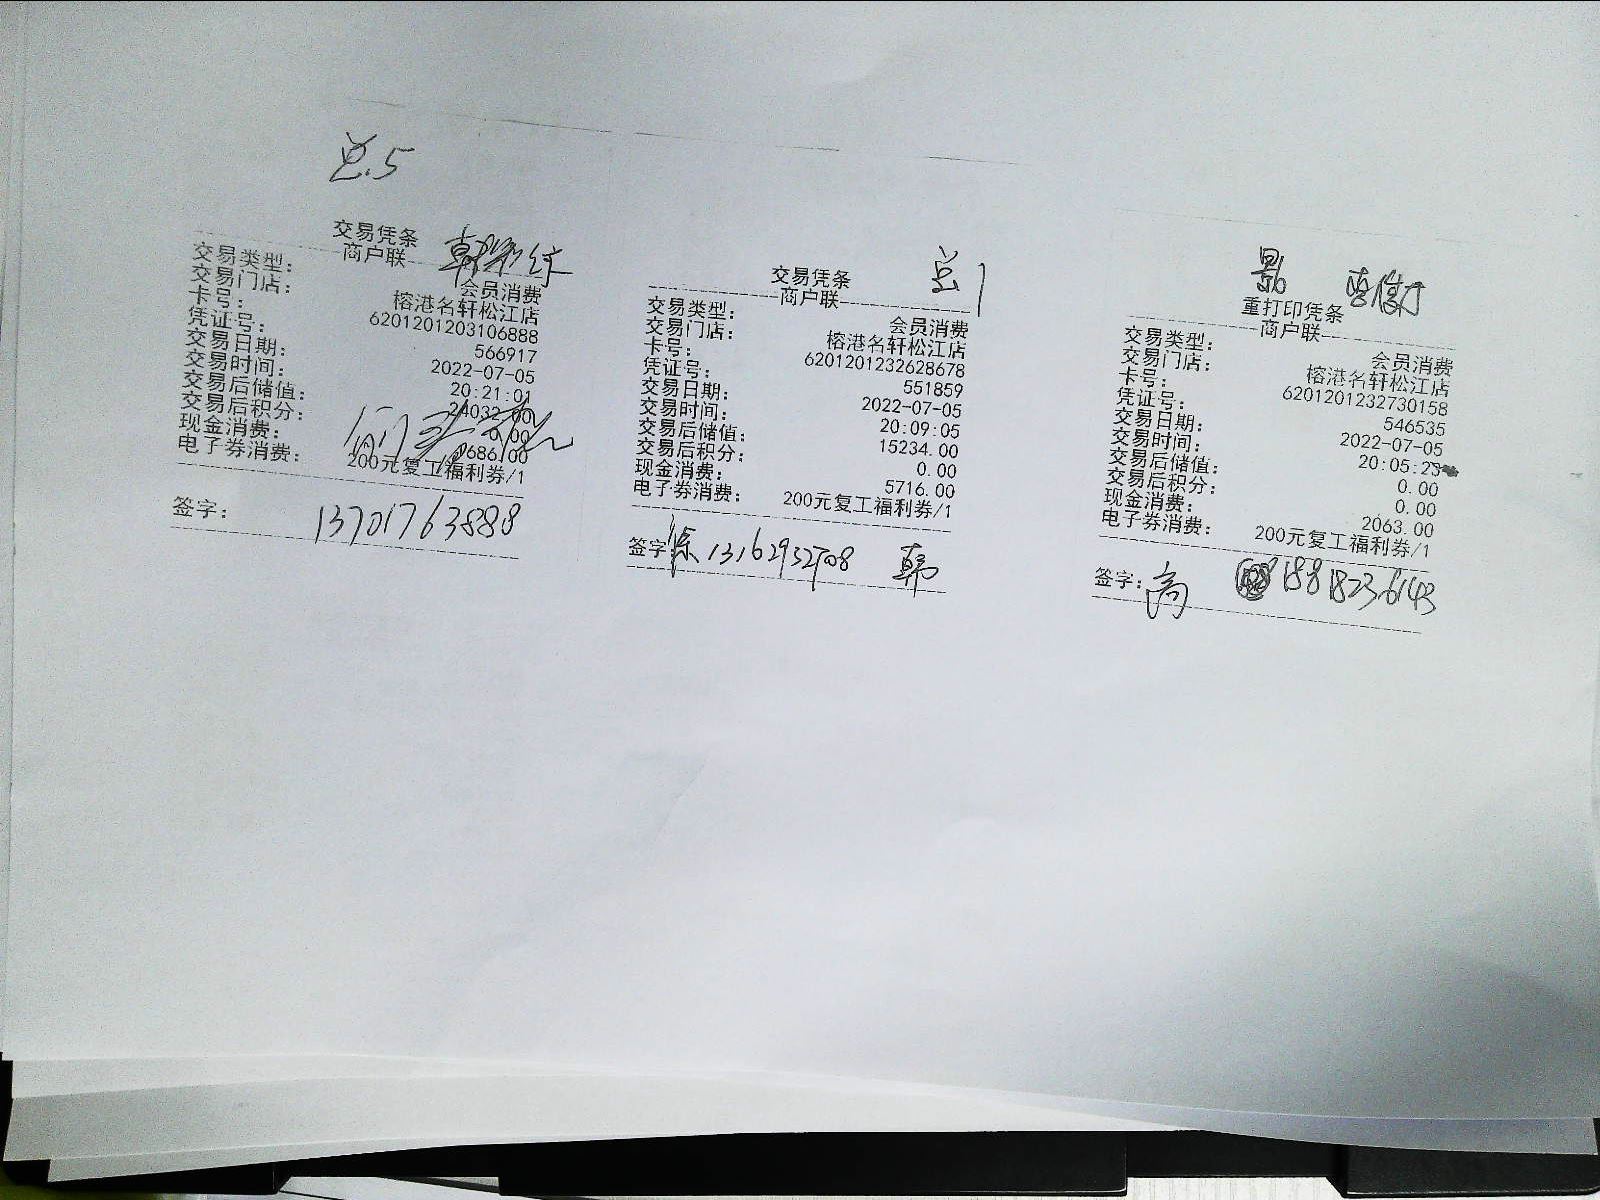 总.5
交易凭条
商户联
交易类型： 会员消费
交易门店： 榕港名轩松江店
卡号： 6201201203106888
凭证号： 566917
交易日期： 2022-07-05
交易时间： 20:21:01
交易后储值： 24032.00
交易后积分： 0.00
现金消费：
电子券消费： 200元复工福利券/1
签字： 13701763888
总1
交易凭条
商户联
交易类型： 会员消费
交易门店： 榕港名轩松江店
卡号： 6201201232628678
凭证号： 551859
交易日期： 2022-07-05
交易时间： 20:09:05
交易后储值： 15234.00
交易后积分： 0.00
现金消费： 5716.00
电子券消费： 200元复工福利券/1
签字 徐 13162932708 韩
重打印凭条
商户联
交易类型： 会员消费
交易门店： 榕港名轩松江店
卡号： 6201201232730158
凭证号： 546535
交易日期： 2022-07-05
交易时间： 20:05:23
交易后储值： 0.00
交易后积分： 0.00
现金消费： 2063.00
电子券消费： 200元复工福利券/1
签字： 高 18818236143